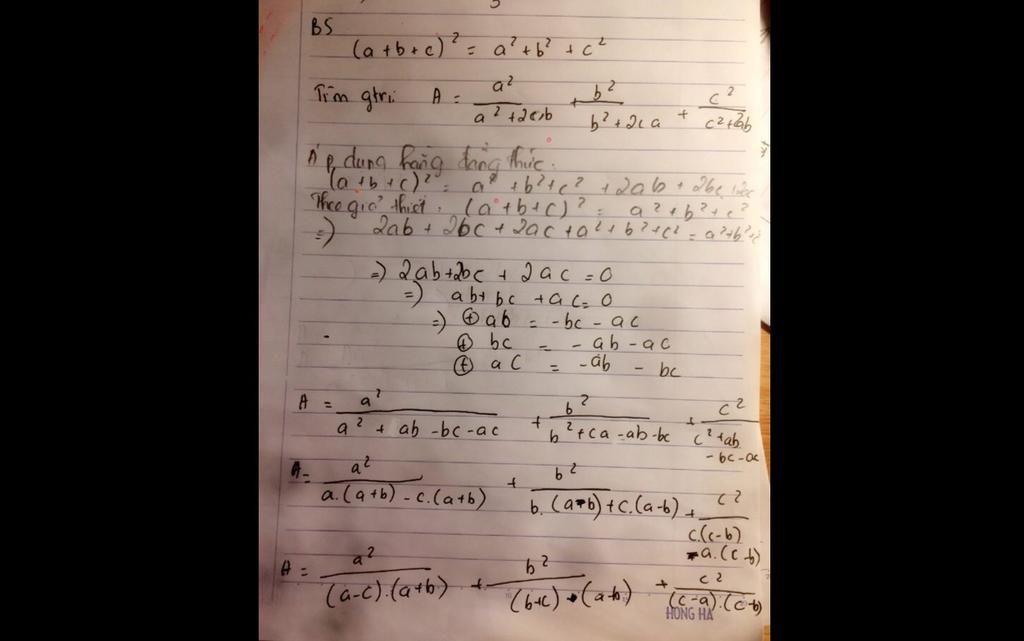 B5
(a+b+c)² = a²+b²+c²
Tìm gtri: A = a²/(a²+2cb) + b²/(b²+2ca) + c²/(c²+2ab)
Áp dụng hằng đẳng thức.
(a+b+c)² = a²+b²+c² + 2ab + 2bc + 2ac
Theo giả thiết. (a+b+c)² = a²+b²+c²
=) 2ab + 2bc + 2ac + a² + b² + c² = a²+b²+c²
=) 2ab+2bc + 2ac = 0
=) ab+ bc + ac = 0
=) ⊕ ab = -bc - ac
⊕ bc = - ab - ac
⊕ ac = -ab - bc
A = a²/(a² + ab - bc - ac) + b²/(b² + ca - ab - bc) + c²/(c² + ab - bc - ac)
A = a²/(a.(a+b) - c.(a+b)) + b²/(b.(a-b) + c.(a-b)) + c²/(c.(c-b) - a.(c-b))
A = a²/((a-c).(a+b)) + b²/((b+c).(a-b)) + c²/((c-a).(c-b))
HONG HA